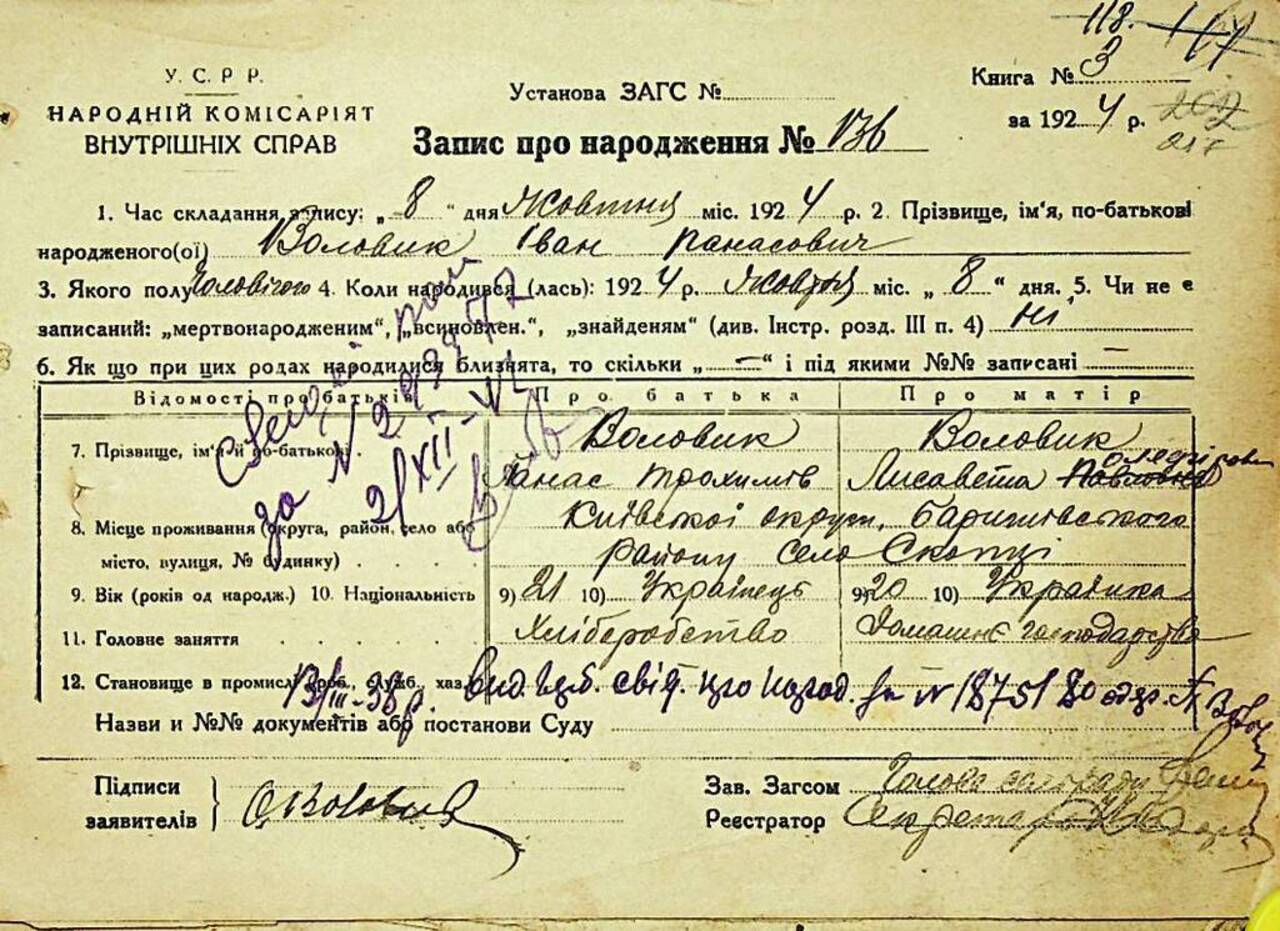 118.
У. С. Р. Р.
НАРОДНІЙ КОМІСАРІЯТ
ВНУТРІШНІХ СПРАВ
Установа ЗАГС №
Книга № 3
за 1924 р.
202
217
Запис про народження № 136
1. Час складання запису: „8“ дня Жовтня міс. 1924 р. 2. Прізвище, ім'я, по-батькові
народженого(ої) Воловик Іван Панасович
3. Якого полу Чоловічого 4. Коли народився (лась): 1924 р. Жовтня міс. „8“ дня. 5. Чи не є
записаний: „мертвонародженим“, „всиновлен.“, „знайденям“ (див. Інстр. розд. III п. 4) Ні
6. Як що при цих родах народилися близнята, то скільки „—“ і під якими №№ записані —
Відомості про батьків Про батька Про матір
7. Прізвище, ім'я й по-батькові Воловик Воловик
Панас Трохимів Лисавета Павловна
8. Місце проживання (округа, район, село або Київської округи, Баришівського
місто, вулиця, № будинку) району село Скопці
9. Вік (років од народж.) 10. Національність 9) 21 10) Українець 9) 20 10) Українка
11. Головне заняття Хліберобство Домашнє господарство
12. Становище в промислі (роб., служб., хаз.
13/III-38 р. вид. свід. про народ. за N 18751
Назви и №№ документів або постанови Суду
за N
21/XII-
Підписи
заявителів
Зав. Загсом Голова сельради
Реєстратор Секретар